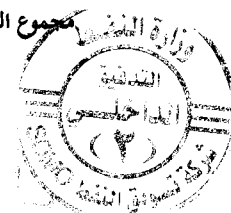 مجموع
وزارة النفط
التدقيق
الداخلي
(٢)
شركة تسويق النفط